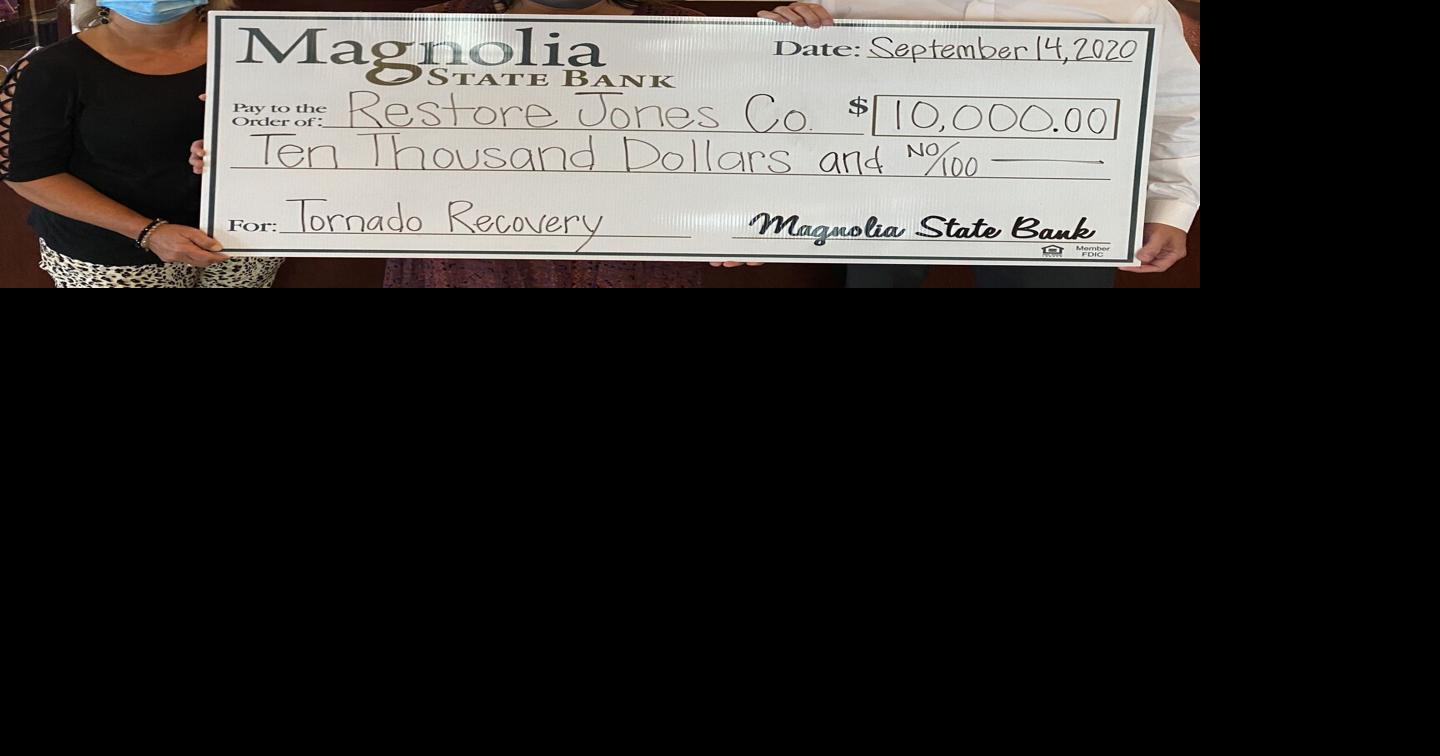 Magnolia
STATE BANK
Date: September 14, 2020
Pay to the
Order of: Restore Jones Co. $ 10,000.00
Ten Thousand Dollars and NO/100
For: Tornado Recovery
Magnolia State Bank
Member
FDIC